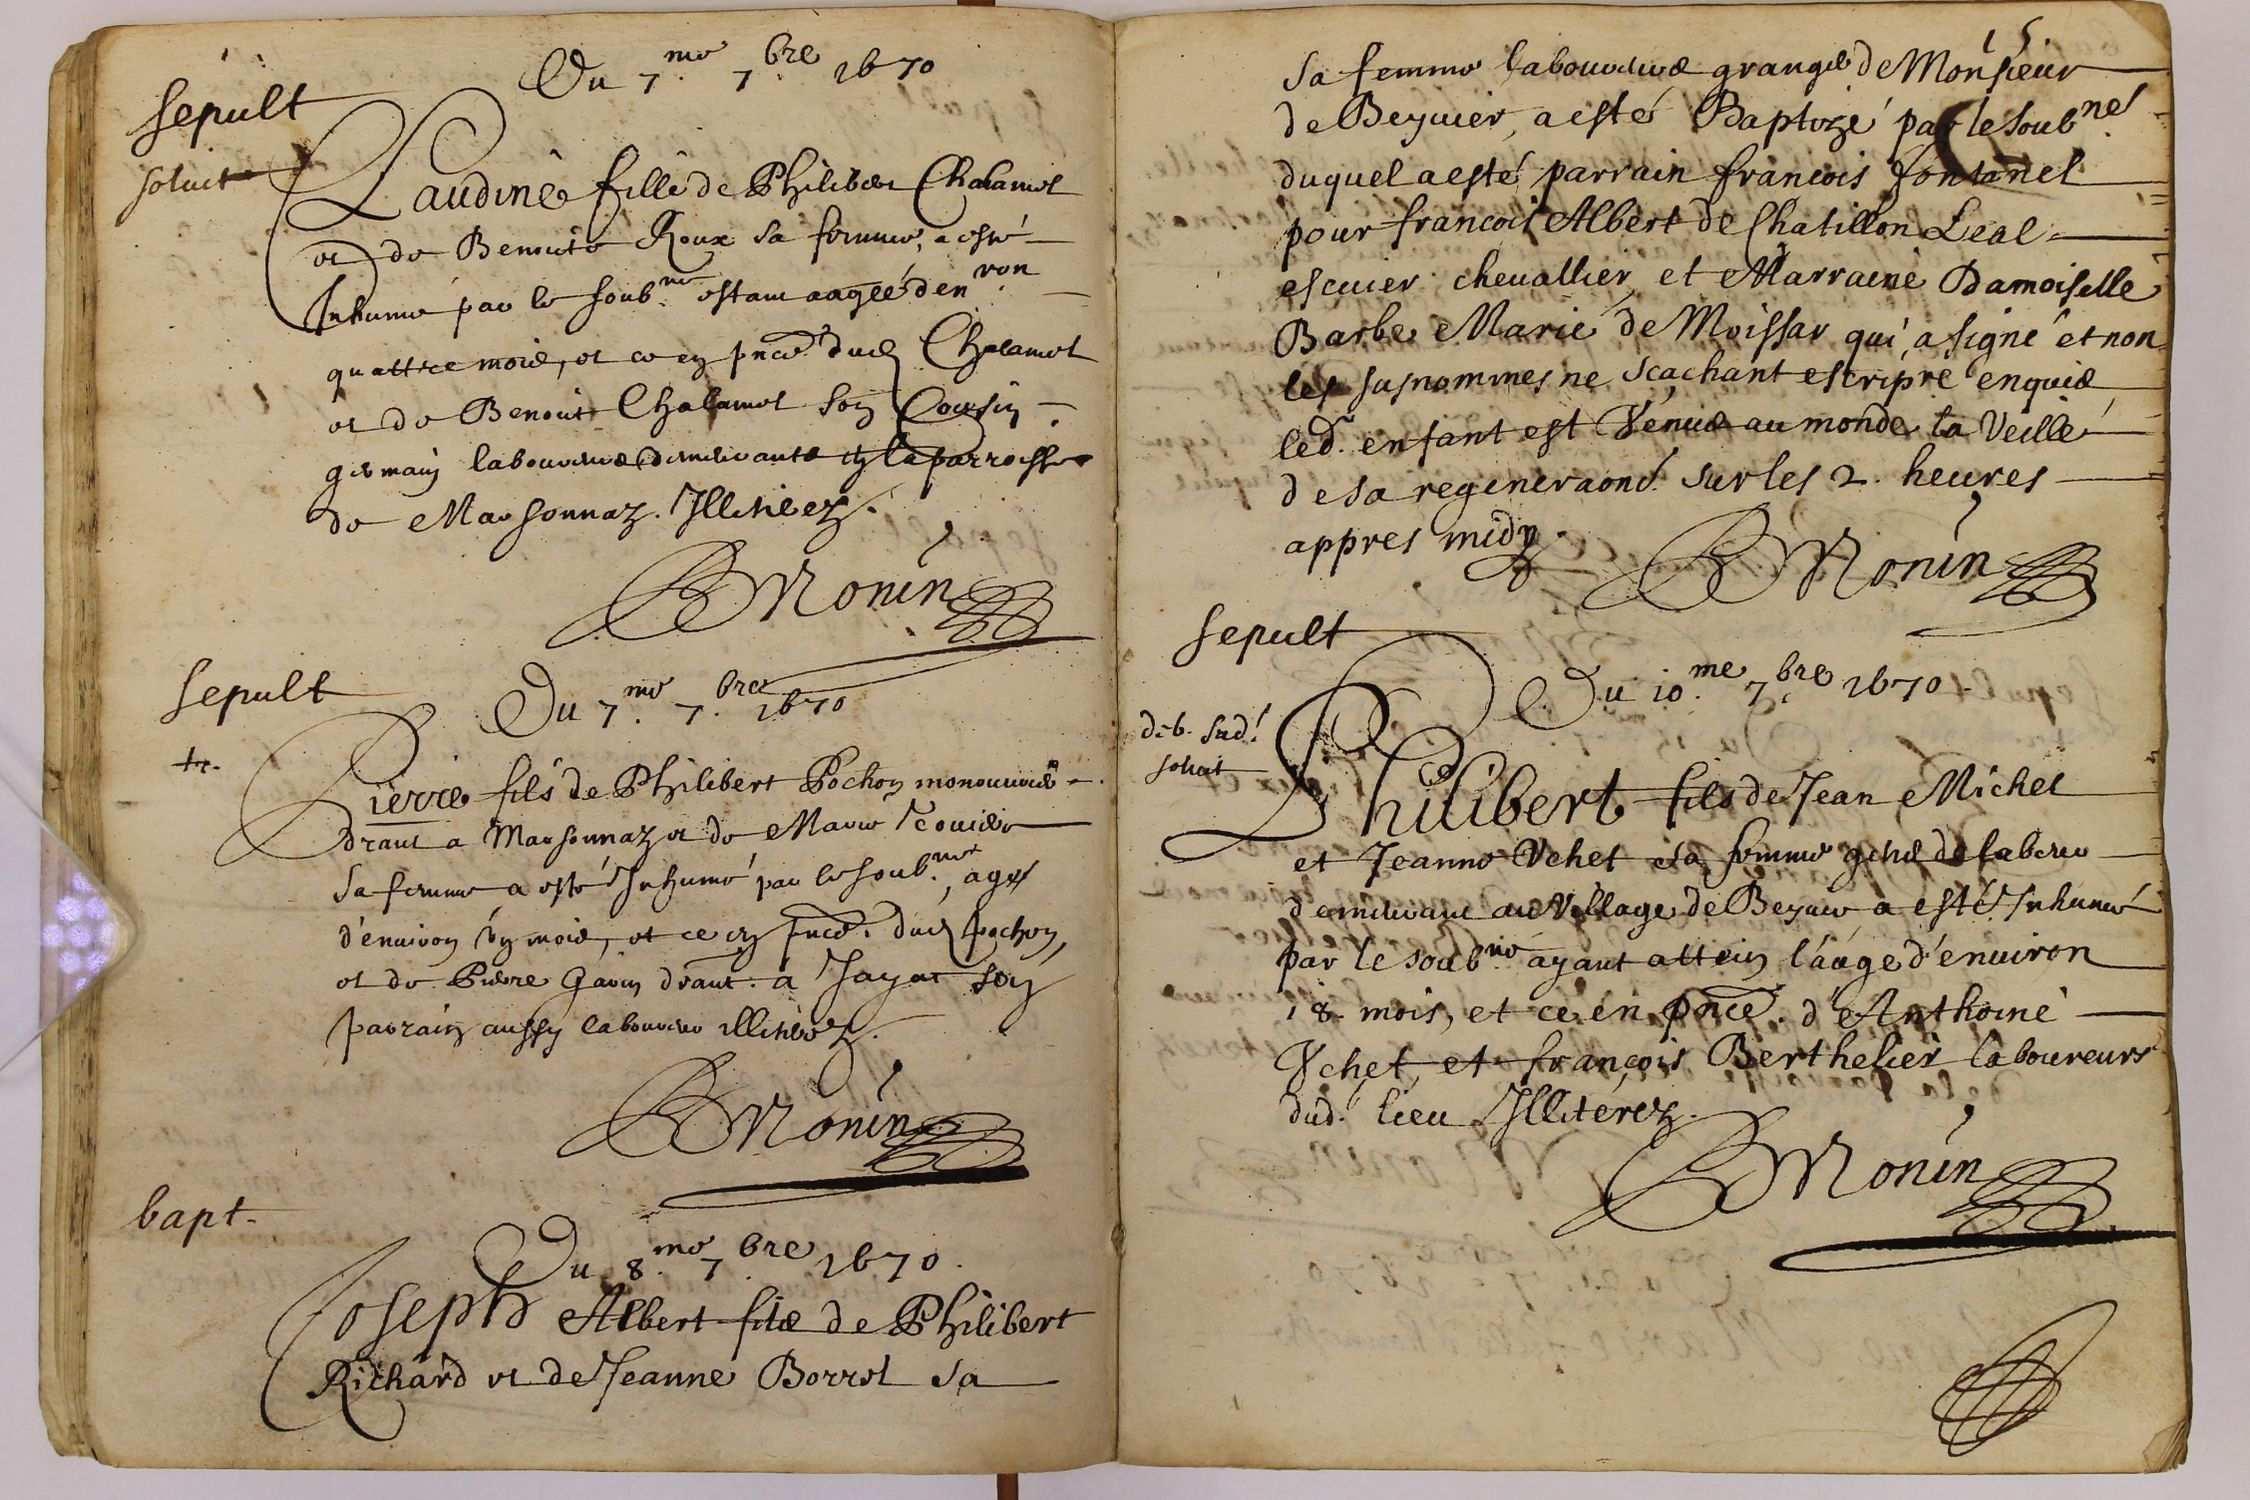 sepult
Du 7.me 7.bre 1670
soluit
Claudine fille de Philiber Chalamel
et de Benoite Roux sa femme, a esté
Inhume par le soub.né estant aagée d'en.ron
quattre mois, et ce en pnce. dud Chalamel
et de Benoit Chalamel son Cousin
germain laboureurs demeurants en la parroisse
de Marsonnaz. Illiterez.
BMonin
sepult
Du 7.me 7.bre 1670
Pierre fils de Philibert Pochon
drant a Marsonnaz et de Marie
sa femme a esté Inhumé par le soub.né, agé
d'enuiron mois, et ce en pnce. dud pochon,
et de Pierre Gauin drant. a Jayat son
parrain aussy laboureur illiterez.
BMonin
bapt.
Du 8.me 7.bre 1670.
Joseph Albert fils de Philibert
Richard et de Jeanne Borrel sa
15.
sa femme laboureurs grangé de Monsieur
de Beyuier, a esté Baptizé par le soub.né
duquel a esté parrain françois fontanel
pour françois Albert de Chatillon Leal
escuier cheuallier, et Marraine Damoiselle
Barbe Marie de Moissar qui a signé et non
les susnommes ne sçachant escripre enquis
led. enfant est Venus au monde la Veille
de sa regeneraoné. sur les 2. heures
appres midy.
BMonin
sepult
Du 10.me 7.bre 1670.
deb. sud.
soluit
Philibert fils de Jean Michel
et Jeanne Vchet sa femme gens de labeur
demeurant au Village de Beyuier a esté Inhumé
par le soub.né ayant attein l'áage d'enuiron
18. mois, et ce en pnce. d'Anthoine
Vchet, et françois Berthelier laboureurs
dud. lieu Illiterez.
BMonin